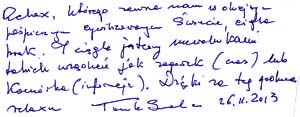 Relax, którego zawsze nam w obecnym
pośpiesznym cyfrowym świecie, ciągle
brak. I ciągle jesteśmy niewolnikami
takich urządzeń jak zegarek (czas) lub
Komórka (informacje). Dzięki za tę godzinę
relaxu 26.11.2013